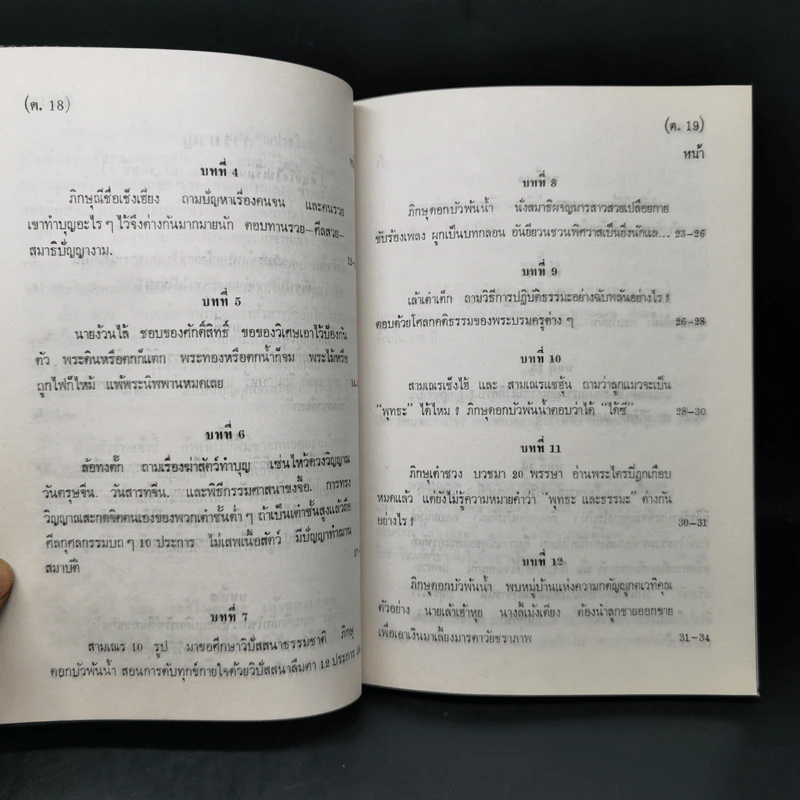 (ต. 18)
บทที่ 4
ภิกษุณีชื่อเช็งเฮียง ถามปัญหาเรื่องคนจน และคนรวย
เขาทำบุญอะไร ๆ ไว้จึงต่างกันมากมายนัก ตอบทานรวย-ศีลสวย-
สมาธิปัญญางาม.
บทที่ 5
นายง้วนไล้ ชอบของศักดิ์สิทธิ์ ขอของวิเศษเอาไว้ป้องกัน
ตัว พระดินหรือตกก็แตก พระทองหรือตกน้ำก็จม พระไม้หรือ
ถูกไฟก็ไหม้ แพ้พระนิพพานหมดเลย
บทที่ 6
ล้อทงตั๊ก ถามเรื่องฆ่าสัตว์ทำบุญ เซ่นไหว้ดวงวิญญาณ
วันตรุษจีน. วันสารทจีน. และพิธีกรรมศาสนาขงจื้อ. การทรง
วิญญาณสะกดจิตตนเองของพวกเต๋าชั้นต่ำ ๆ ถ้าเป็นเต๋าชั้นสูงแล้วถือ
ศีลกุศลกรรมบถ ๆ 10 ประการ ไม่เสพเนื้อสัตว์ มีปัญญาทำฌาน
สมาบัติ
บทที่ 7
สามเณร 10 รูป มาขอศึกษาวิปัสสนาธรรมชาติ ภิกษุ
ดอกบัวพ้นน้ำ สอนการดับทุกข์กายใจด้วยวิปัสสนาลืมตา 12 ประการ
(ต. 19)
หน้า
บทที่ 8
ภิกษุดอกบัวพ้นน้ำ นั่งสมาธิผจญมารสาวสวยเปลือยกาย
ขับร้องเพลง ผูกเป็นบทกลอน อันยียวนชวนพิศวาสเป็นยิ่งนักแล... 23-26
บทที่ 9
เล้าเต๋าเต็ก ถามวิธีการปฏิบัติธรรมะอย่างฉับพลันอย่างไร ?
ตอบด้วยโศลกคติธรรมของพระบรมครูต่าง ๆ 26-28
บทที่ 10
สามเณรเช็งไฮ้ และ สามเณรแชฮุ้น ถามว่าลูกแมวจะเป็น
"พุทธะ" ได้ไหม ? ภิกษุดอกบัวพ้นน้ำตอบว่าได้ "ได้ซี" 28-30
บทที่ 11
ภิกษุเต๋าชวง บวชมา 20 พรรษา อ่านพระไตรปิฎกเกือบ
หมดแล้ว แต่ยังไม่รู้ความหมายคำว่า "พุทธะ และธรรมะ" ต่างกัน
อย่างไร ? 30-31
บทที่ 12
ภิกษุดอกบัวพ้นน้ำ พบหมู่บ้านแห่งความกตัญญูกตเวทิคุณ
ตัวอย่าง นายเล้าเฮ้าทุย นางลี้เม้งเตียง ต้องนำลูกชายออกขาย
เพื่อเอาเงินมาเลี้ยงมารดาวัยชราภาพ 31-34